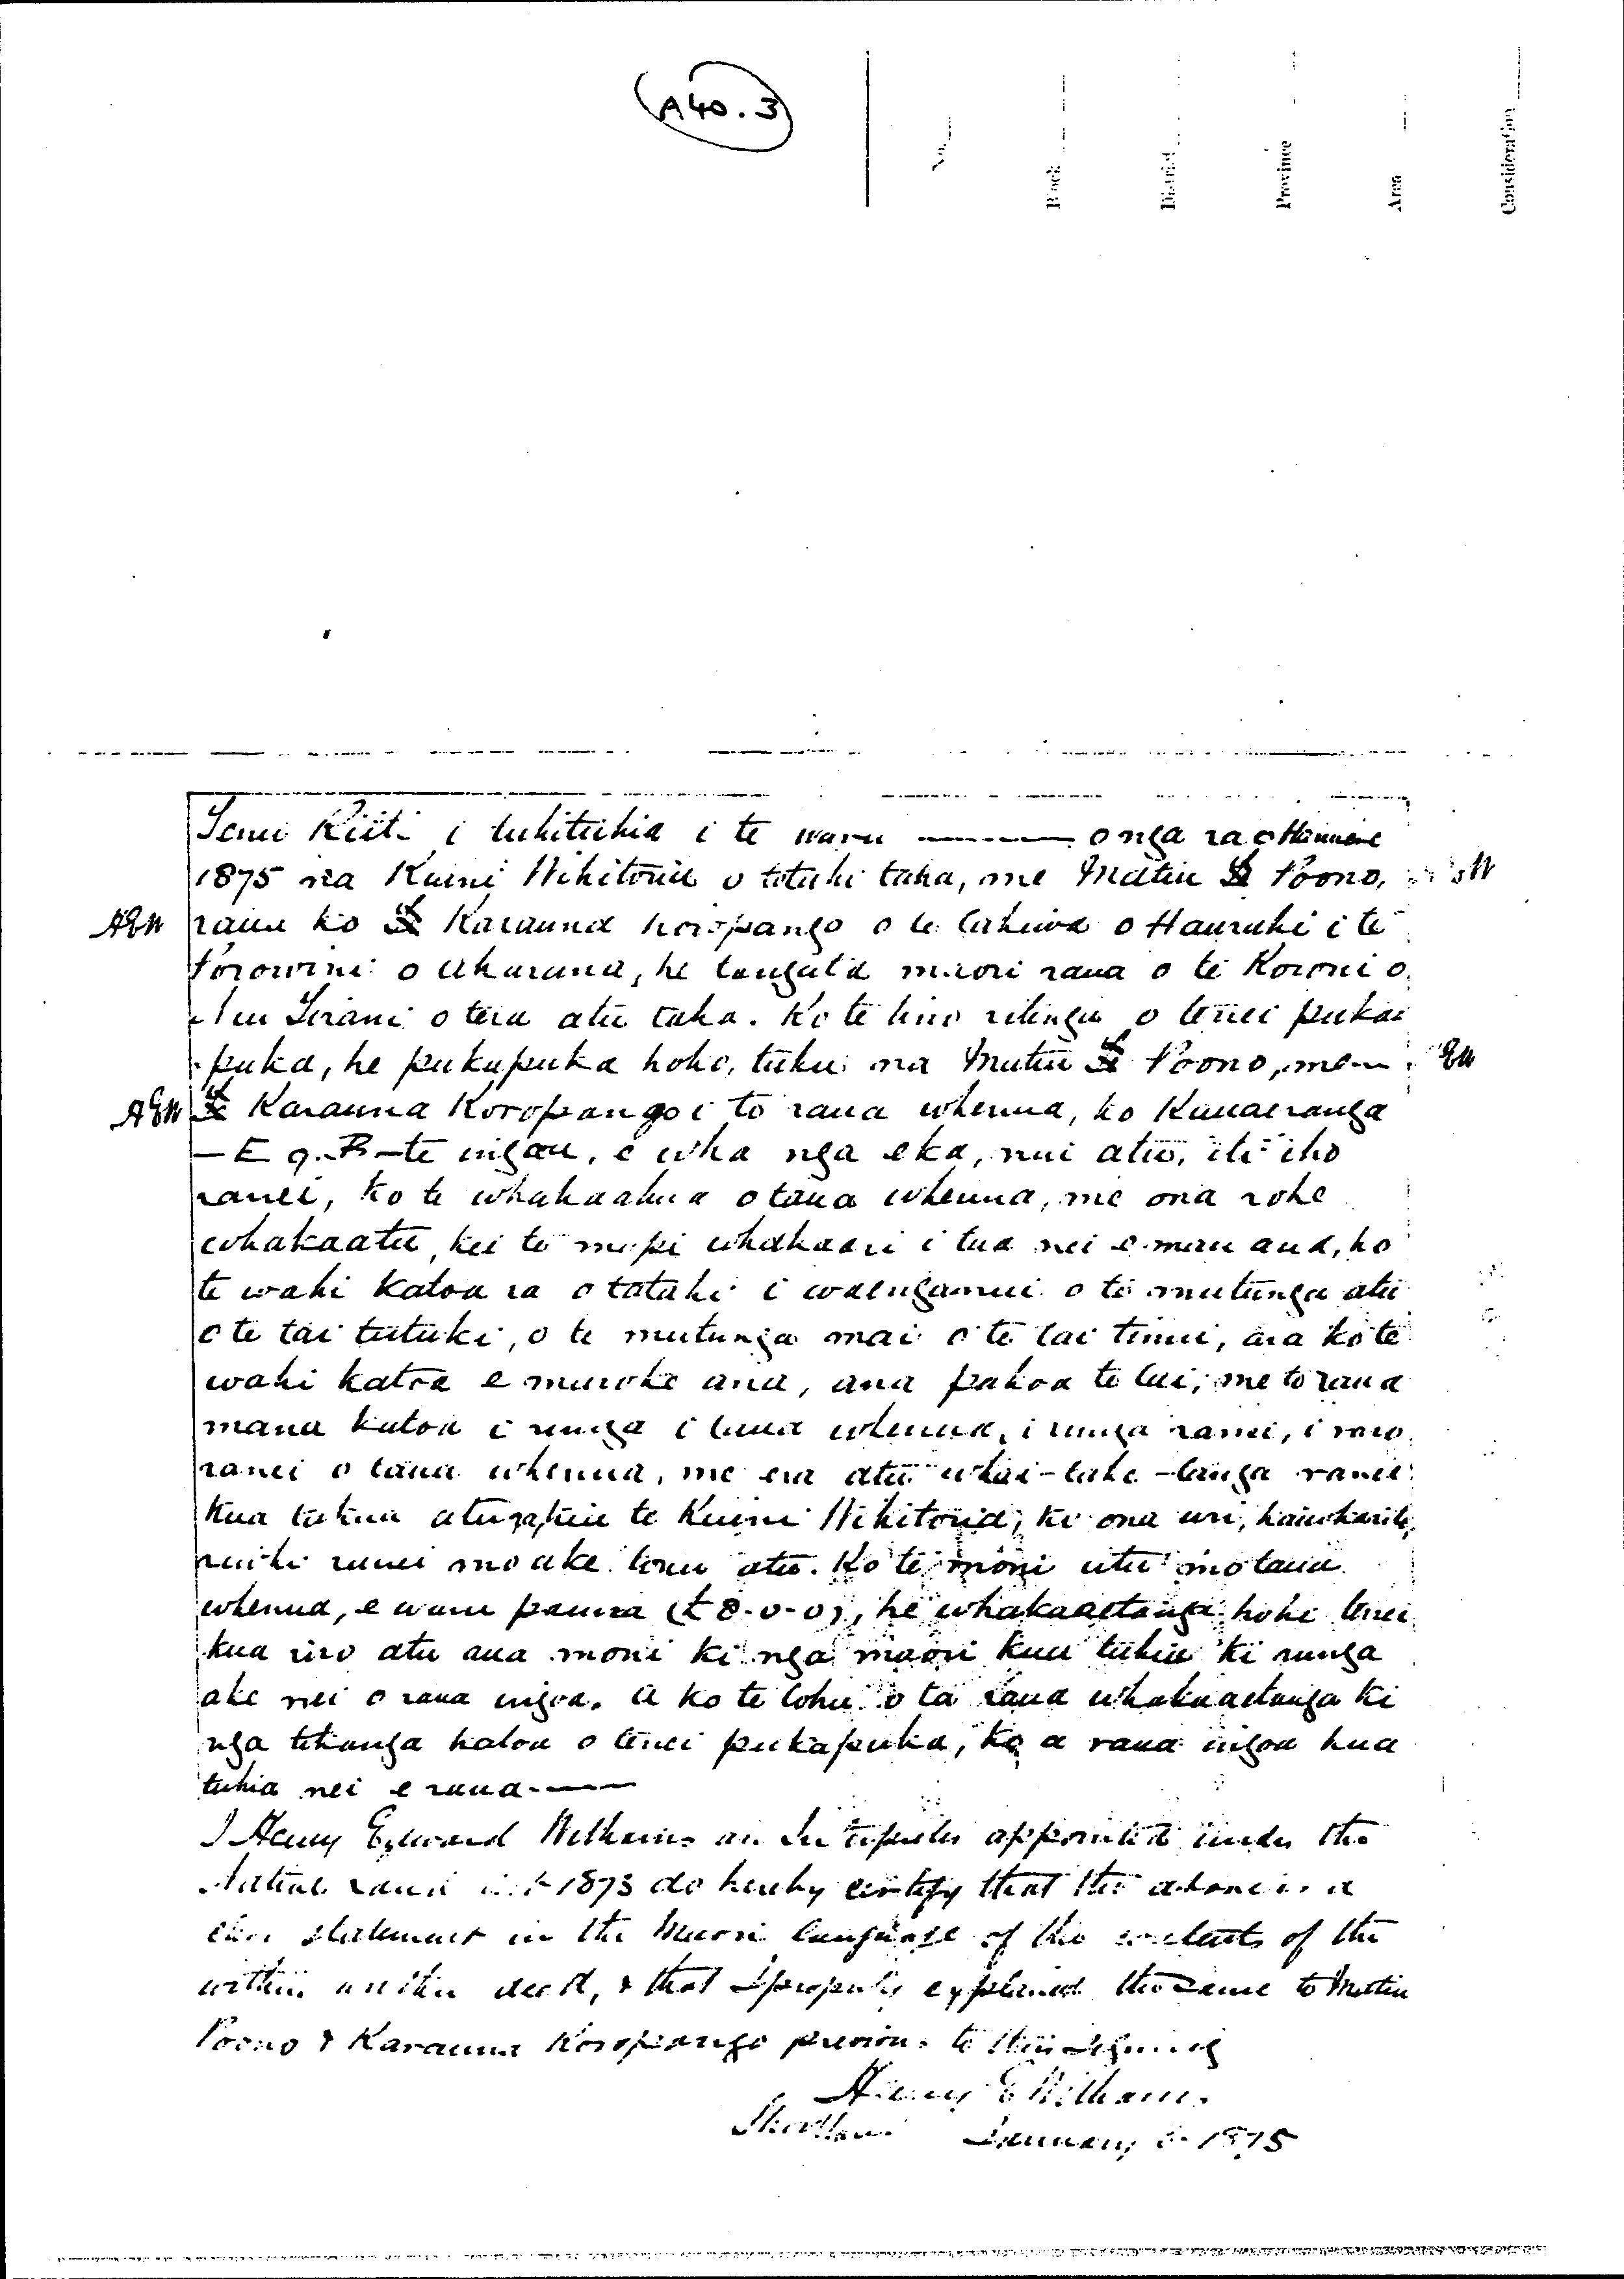 A40.3
Block
District
Province
Area
Consideration
Tenei Riiti i tuhituhia i te waru —— o nga ra o Hanuere
1875 na Kuini Wikitoria o tetahi taha, me Matiu Te Poono,
HEW raua ko Te Karauna Koropango o te takiwa o Hauraki i te
Porowini o Akarana, he tangata maori raua o te Koroni o
Niu Tirani o tera atu taha. Ko te tino ritenga o tenei puka
puka, he pukapuka hoko, tuku na Matiu Te Poono, me EW
HEW Te Karauna Koropango i to raua whenua, ko Kauaeranga
— E 9. B — te ingoa, e wha nga eka, nui atu, iti iho
ranei, ko te whakaahua o taua whenua, me ona rohe
whakaatu, kei te mapi whakaari i tua nei e mau ana, ko
te wahi katoa ra o tatahi i waenganui o te mutunga atu
o te tai tutuki, o te mutunga mai o te tai timu, ara ko te
wahi katoa e maroke ana, ana pakoa te tai, me to raua
mana katoa i runga i taua whenua, i runga ranei, i raro
ranei o taua whenua, me era atu whai-take-tanga ranei
kua tukua atu ra, kia te Kuini Wikitoria, ki ona uri, kaiwhakarite,
riiwhi ranei mo ake tonu atu. Ko te moni utu mo taua
whenua, e waru pauna (£8-0-0), he whakaaetanga hoki tenei
kua riro atu aua moni ki nga maori kua tuhia ki runga
ake nei o raua ingoa. A ko te tohu o ta raua whakaaetanga ki
nga tikanga katoa o tenei pukapuka, ko a raua ingoa kua
tuhia nei e raua ——
I Henry Edward Williams an Interpreter appointed under the
Native Land Act 1873 do hereby certify that the above is a
clear statement in the Maori language of the contents of the
within written deed, & that I properly explained the same to Matiu
Poono & Karauna Koropango previous to their signing
Henry E Williams
Shortland January 8 1875